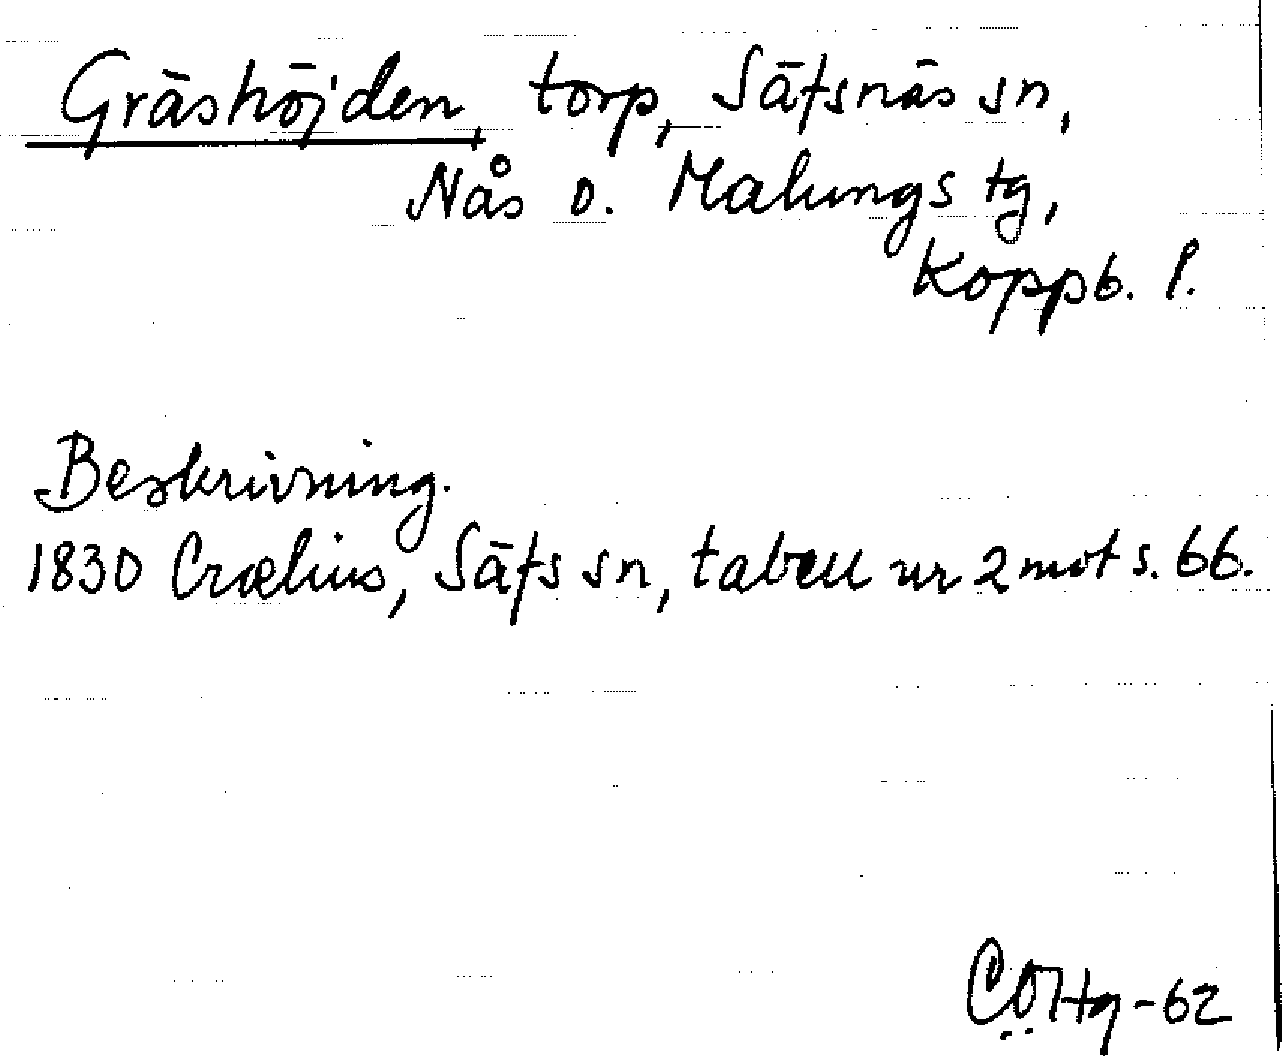 Gräshöjden, torp, Säfsnäs sn,
Nås o. Malungs tg,
Koppb. l.
Beskrivning.
1830 Crælius, Säfs sn, tabell nr 2 mot s. 66.